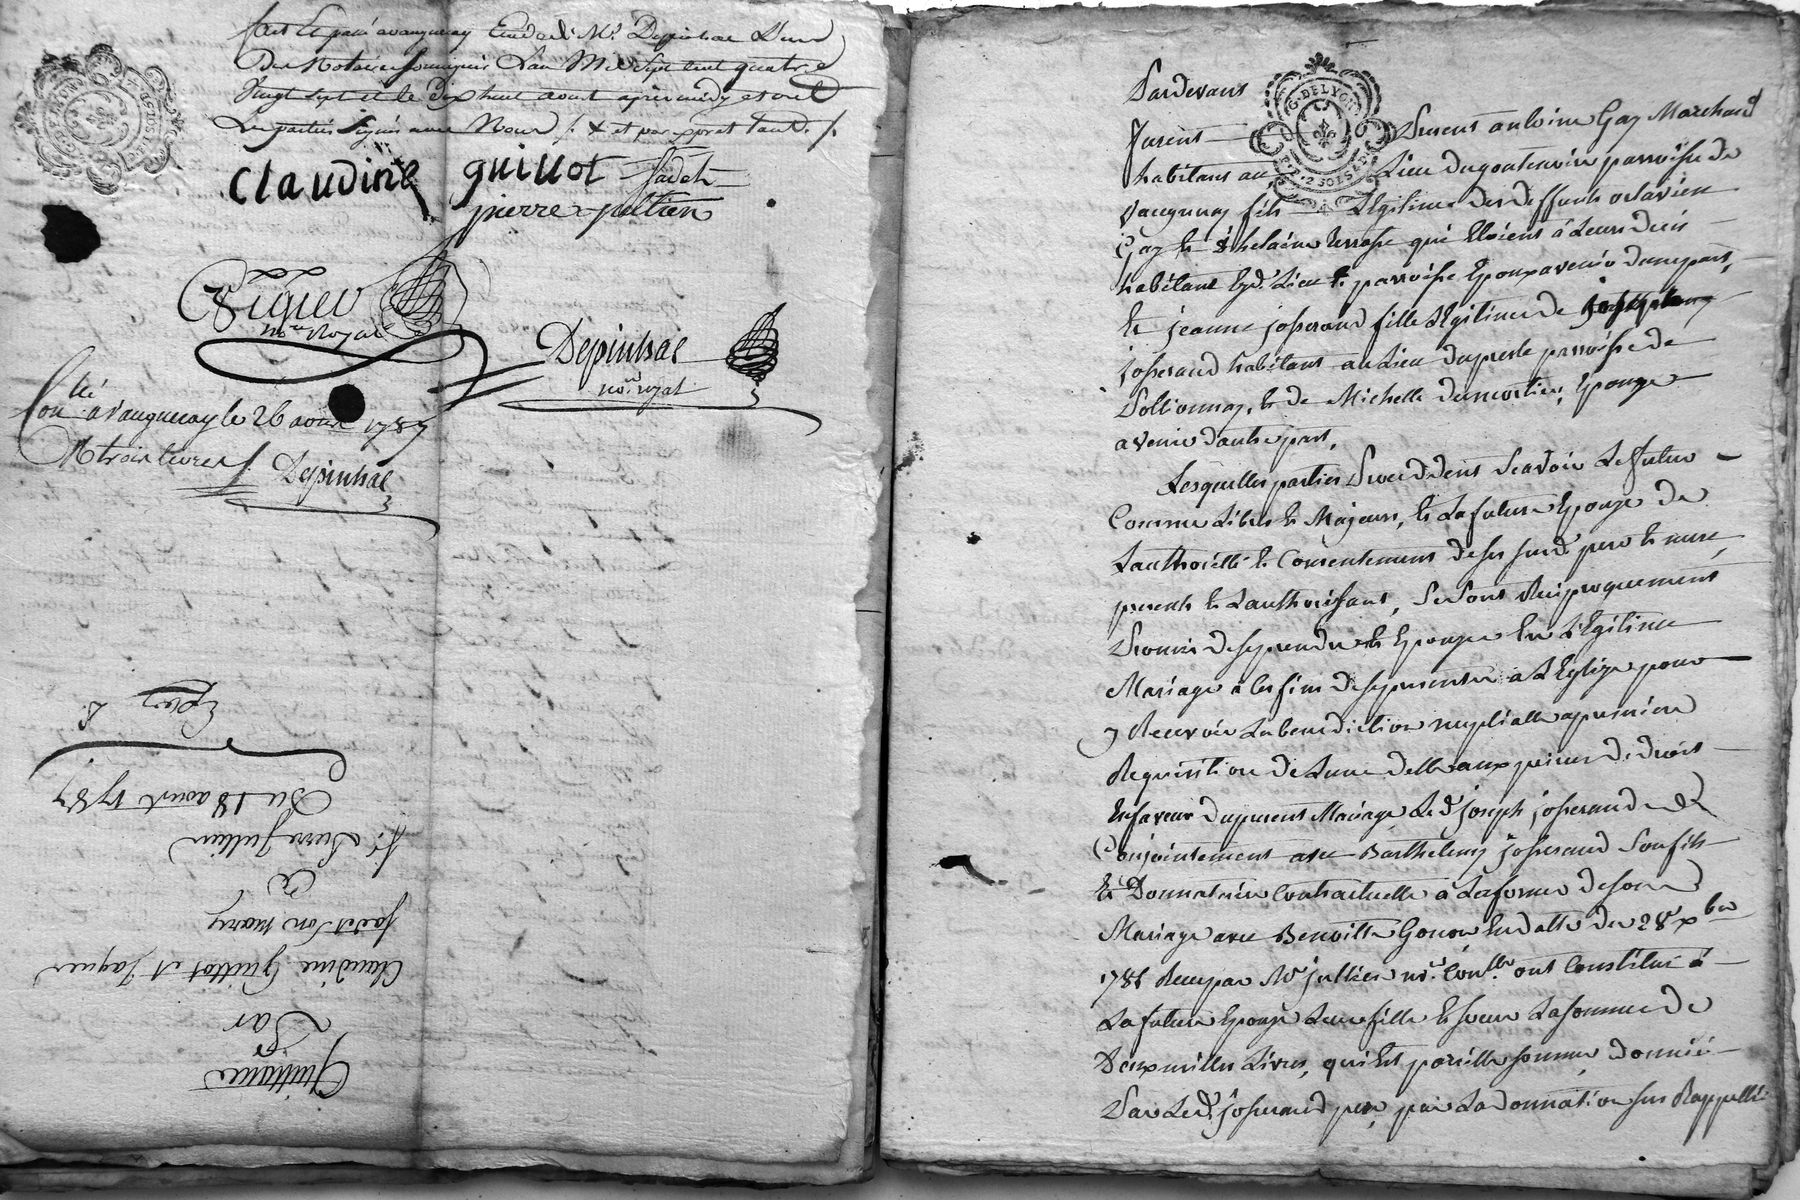 fait et passé a vaugneray Etude de Me Depinhac L'un
Des Notaires soussignés L'an Mil Sept cent quatre
Vingt sept et le Dix huit aoust après midy et ont
Les parties Signés avec Nous
Claudine guillot Jadet
pierre jullien
Viguer
nore Royal
Depinhac
nore royal
Conllé à Vaugneray le 26 aoust 1787
R trois livres Depinhac
Expez
Du 18 aoust 1787
Sr. Pierre Jullien
a
jadet son mary
Claudine Guillot et Jaques
Par
Quittance
G. DE LYON
Pardevant
furent Present antoine Gay Marchand
habitant au Lieu du parroisse de
Vaugneray fils Légitime des deffunts octavien
Gay et helaine terrasse qui Etoient à Leurs decès
habitant Lyd. Lieu et parroisse Epoux avenir d'une part,
Et jeanne josserand fille Légitime de
josserand habitant au Lieu du parroisse de
Pollionnay, Et de Michelle Dumortier, Epouze
avenir d'autre part,
Lesquelles parties Procedderts Scavoir Le futur
Comme Libre Et Majeur, Et La future Epouze de
L'authorité Et Consentement de ses susd. pere Et mere
presents Et L'authorisant, Se Sont Reciproquement
Promis de se prendre Et Epouzer En Légitime
Mariage à Ces fins de se presenter à L'Eglize pour
y Recevoir La benediction nuptialle a premiere
Requisition de L'une d'elle aux peines de droit
En faveur du present Mariage Led. joseph josserand
Conjointement avec Barthelemy josserand Son fils
Et Donnataire Contractuelle à La forme de son
Mariage avec Benoitte Gonon En datte du 28 xbre
1781 Recu par Me jullien nre. Conllé. ont Constitué à
La future Epouze Leur fille Et soeur La somme de
Deux milles Livres, qui Est pareille somme donnée
Par Led. josserand pere par La donnation sus Rappellée